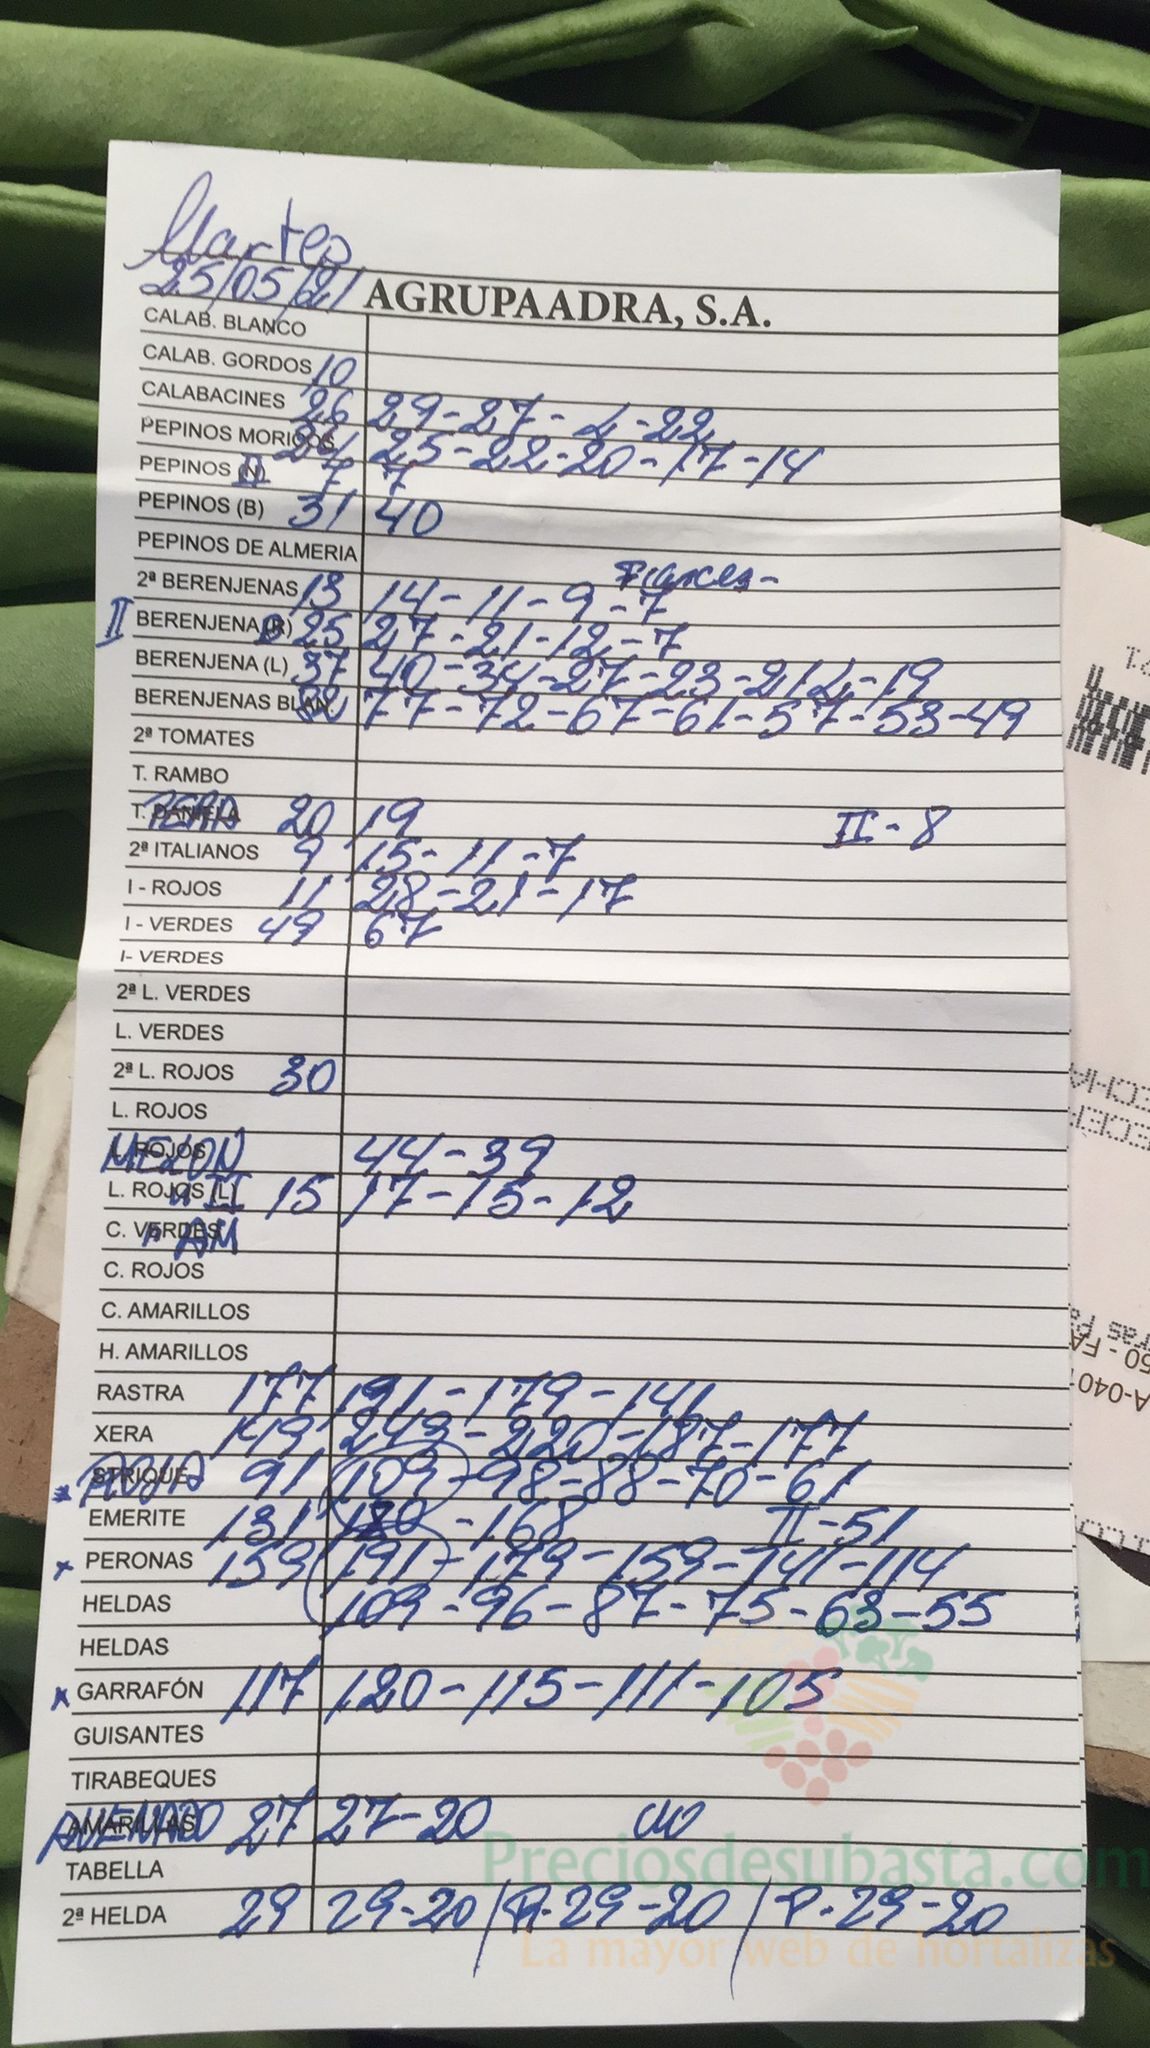 Martes
25/05/21 AGRUPAADRA, S.A.
CALAB. BLANCO
CALAB. GORDOS 10
CALABACINES 26 29-27-2-22
PEPINOS MORICOS 24 25-22-20-17-14
PEPINOS II 7 7
PEPINOS (B) 31 40
PEPINOS DE ALMERIA
Frances-
2ª BERENJENAS 13 14-11-9-7
II BERENJENA 25 27-21-12-7
BERENJENA (L) 37 40-34-27-23-212-19
BERENJENAS BLAN. 82 77-72-67-61-57-53-49
2ª TOMATES
T. RAMBO
T. DANIELA PERA 20 19 II-8
2ª ITALIANOS 9 15-11-7
I - ROJOS 11 28-21-17
I - VERDES 49 67
I- VERDES
2ª L. VERDES
L. VERDES
2ª L. ROJOS 30
L. ROJOS
L. ROJOS MELON 44-39
L. ROJOS (L) " II 15 17-15-12
C. VERDES " AM
C. ROJOS
C. AMARILLOS
H. AMARILLOS
RASTRA 177 191-179-141
XERA 149 243-220-187-177
* STRIQUE ROJA 91 109-98-88-70-61
EMERITE 131 180-168 II-51
x PERONAS 159 191-179-159-141-114
HELDAS 109-96-87-75-63-55
HELDAS
x GARRAFÓN 117 120-115-111-105
GUISANTES
TIRABEQUES
AMARILLAS AVENADO 27 27-20
Preciosdesubasta.com
TABELLA
2ª HELDA 29 29-20/R-29-20/P-29-20
La mayor web de hortalizas